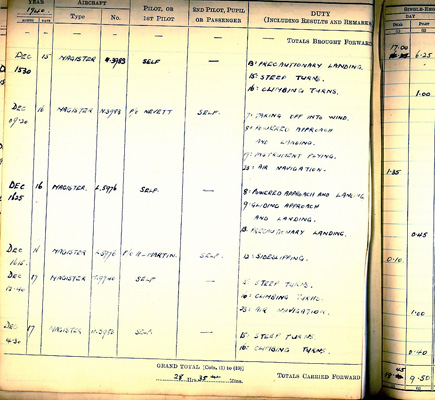 YEAR AIRCRAFT PILOT, OR 2ND PILOT, PUPIL DUTY
1940. Type No. 1ST PILOT OR PASSENGER (INCLUDING RESULTS AND REMARKS
MONTH DATE
TOTALS BROUGHT FORWARD
DEC 15 MAGISTER SELF — 13: PRECAUTIONARY LANDING.
1530 15: STEEP TURNS.
16: CLIMBING TURNS.
DEC 16 MAGISTER NEVETT SELF. 7: TAKING OFF INTO WIND.
8: POWERED APPROACH
AND LANDING.
INSTRUMENT FLYING.
AIR NAVIGATION.
DEC 16 MAGISTER. L.5976 SELF — 8: POWERED APPROACH AND LANDING
1625 9: GLIDING APPROACH
AND LANDING.
13: PRECAUTIONARY LANDING.
DEC MAGISTER MARTIN. SELF. SIDESLIPPING.
DEC 17 MAGISTER SELF — STEEP TURNS.
16: CLIMBING
AIR NAVIGATION.
DEC 17 MAGISTER SELF — 15: STEEP TURNS.
16: CLIMBING TURNS.
GRAND TOTAL [Cols. (1) to (10)]
28 Hrs. 35 Mins.
TOTALS CARRIED FORWARD
SINGLE-EN
DAY
DUAL PILOT
(1) (2)
17.00 6.25
1.35
0.45
0.10
1.00
0.40
45
9.50